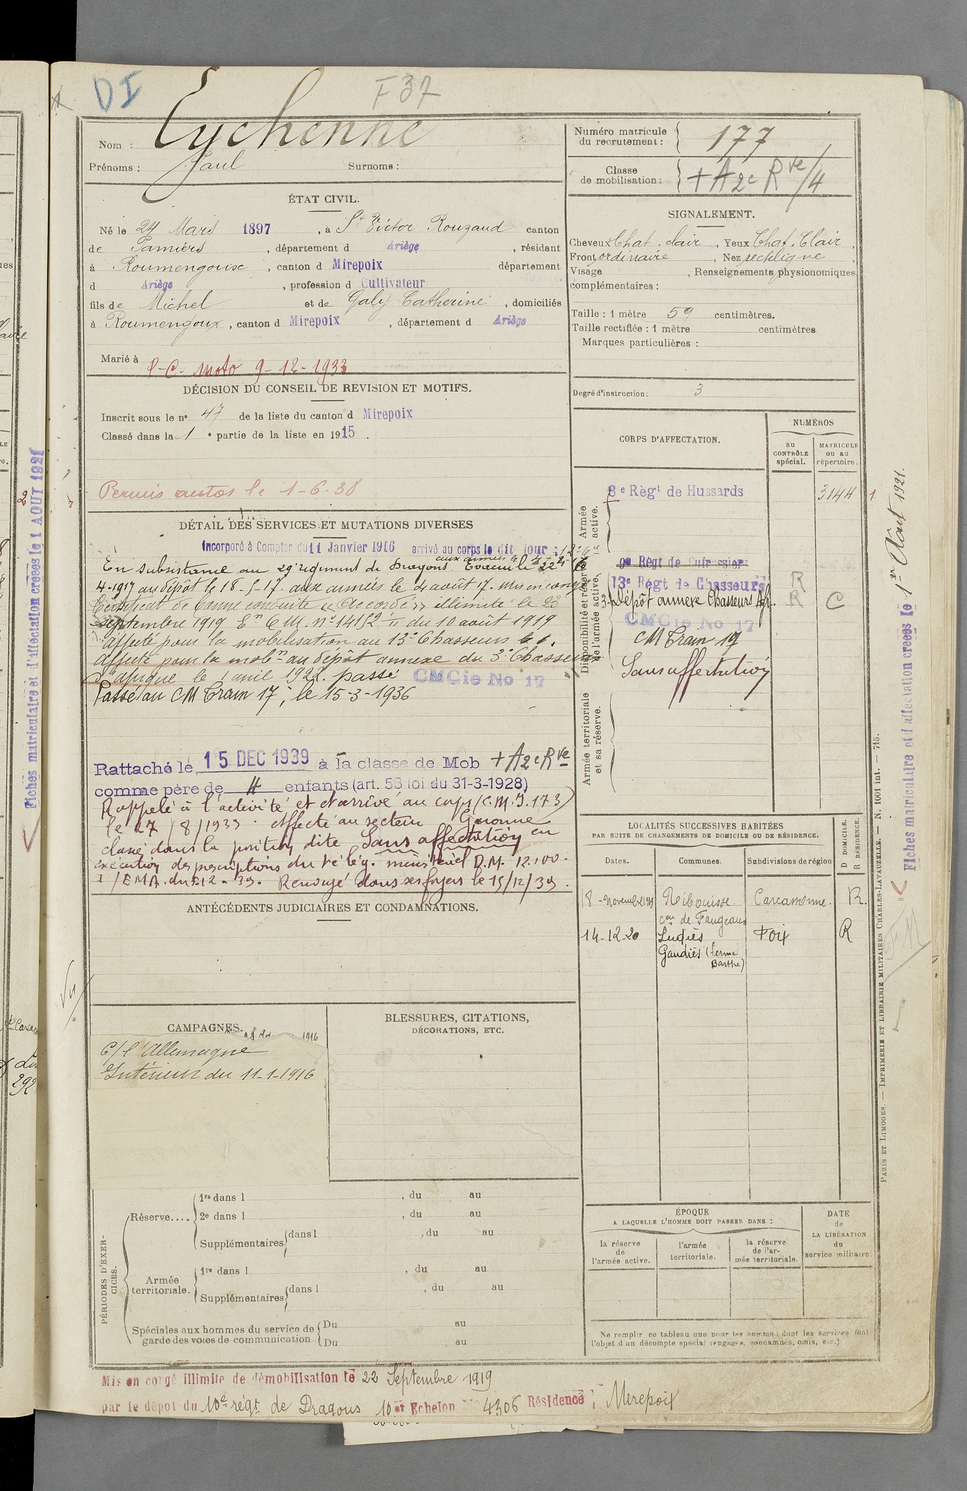 DI
F 37
Nom : Eychenne
Prénoms : Paul Surnoms :
Numéro matricule du recrutement : 177
Classe de mobilisation : + A 2e Rve/4
ÉTAT CIVIL.
Né le 29 Mars 1897, à St Victor Rouzaud canton
de Pamiers, département d Ariège, résidant
à Roumengoux, canton d Mirepoix département
d Ariège, profession d Cultivateur
fils de Michel et de Galy Catherine, domiciliés
à Roumengoux, canton d Mirepoix, département d Ariège
Marié à
P.C. moto 9-12-1933
SIGNALEMENT.
Cheveux Chat. clair, Yeux Chat. Clair,
Front ordinaire, Nez rectiligne,
Visage , Renseignements physionomiques
complémentaires :
Taille : 1 mètre 59 centimètres.
Taille rectifiée : 1 mètre centimètres
Marques particulières :
Degré d'instruction : 3
DÉCISION DU CONSEIL DE REVISION ET MOTIFS.
Inscrit sous le no 47 de la liste du canton d Mirepoix
Classé dans la 1e partie de la liste en 1915.
Permis autos le 1-6-38
DÉTAIL DES SERVICES ET MUTATIONS DIVERSES
Incorporé à Compter du 11 Janvier 1916 arrivé au corps le dit jour
En subsistance au 29e régiment de Dragons aux armées le Evacué le 22
4-1917 au dépôt le 18-5-17. aux armées le 4 août 17. Mis en congé
Certificat de bonne conduite "Accordé" illimité le 23
Septembre 1919 En C.M. no 14152 II du 10 août 1919
affecté pour la mobilisation au 13e Chasseurs
Affecté pour la mobon au dépôt annexe du 3e Chasseurs
d'afrique le 1 avril 1927. passé CMCie No 17
Passé au CM Train 17, le 15-3-1936
Rattaché le 15 DEC 1939 à la classe de Mob + A 2e Rve
comme père de 4 enfants (art. 58 loi du 31-3-1928)
Rappelé à l'activité et est arrivé au corps (C.M.I. 173)
le 27/8/1939. Affecté au secteur Garonne
classé dans la position dite Sans affectation en
exécution des prescriptions du télég. ministériel D.M. 12.100.
1/EMA. du 2.12.39. Renvoyé dans ses foyers le 15/12/39.
CORPS D'AFFECTATION.
NUMÉROS
au CONTRÔLE spécial.
MATRICULE ou au répertoire.
Armée active.
8e Régt de Hussards 3144
Disponibilité et réserve de l'armée active.
9e Régt de Cuirassiers
13e Régt de Chasseurs R
3e Dépôt annexe Chasseurs Af. R C
CMCie No 17
CM Train 17
Sans affectation
Armée territoriale et sa réserve.
LOCALITÉS SUCCESSIVES HABITÉES
PAR SUITE DE CHANGEMENTS DE DOMICILE OU DE RÉSIDENCE.
Dates. Communes. Subdivisions de région
D DOMICILE. R RÉSIDENCE.
8 Novembre 1919 Ribouisse Carcassonne. R.
con de Fangeaux
14-12-20 Ludiès Foix R
Gaudiès (ferme Barthe)
ANTÉCÉDENTS JUDICIAIRES ET CONDAMNATIONS.
CAMPAGNES.
C/ l'Allemagne
Intérieur du 11-1-1916
BLESSURES, CITATIONS,
DÉCORATIONS, ETC.
PÉRIODES D'EXERCICES.
Réserve....
1re dans l , du au
2e dans l , du au
Supplémentaires dans l , du au
Armée territoriale.
1re dans l , du au
Supplémentaires dans l , du au
Spéciales aux hommes du service de garde des voies de communication
Du au
Du au
ÉPOQUE
A LAQUELLE L'HOMME DOIT PASSER DANS :
la réserve de l'armée active.
l'armée territoriale.
la réserve de l'armée territoriale.
DATE de LA LIBÉRATION du service militaire.
Ne remplir ce tableau que pour les hommes dont les services font
l'objet d'un décompte spécial (engagés, condamnés, omis, etc.)
Mis en congé illimité de démobilisation le 23 Septembre 1919
par le dépôt du 10e régt de Dragons 10e Echelon No 4306 Résidence : Mirepoix
Fiches matriculaire et d'affectation créées le 1 AOUT 1921
Fiches matriculaire et d'affectation créées le 1er Août 1921.
PARIS ET LIMOGES. — IMPRIMERIE ET LIBRAIRIE MILITAIRES CHARLES-LAVAUZELLE. — N. 1001 int. — 715.